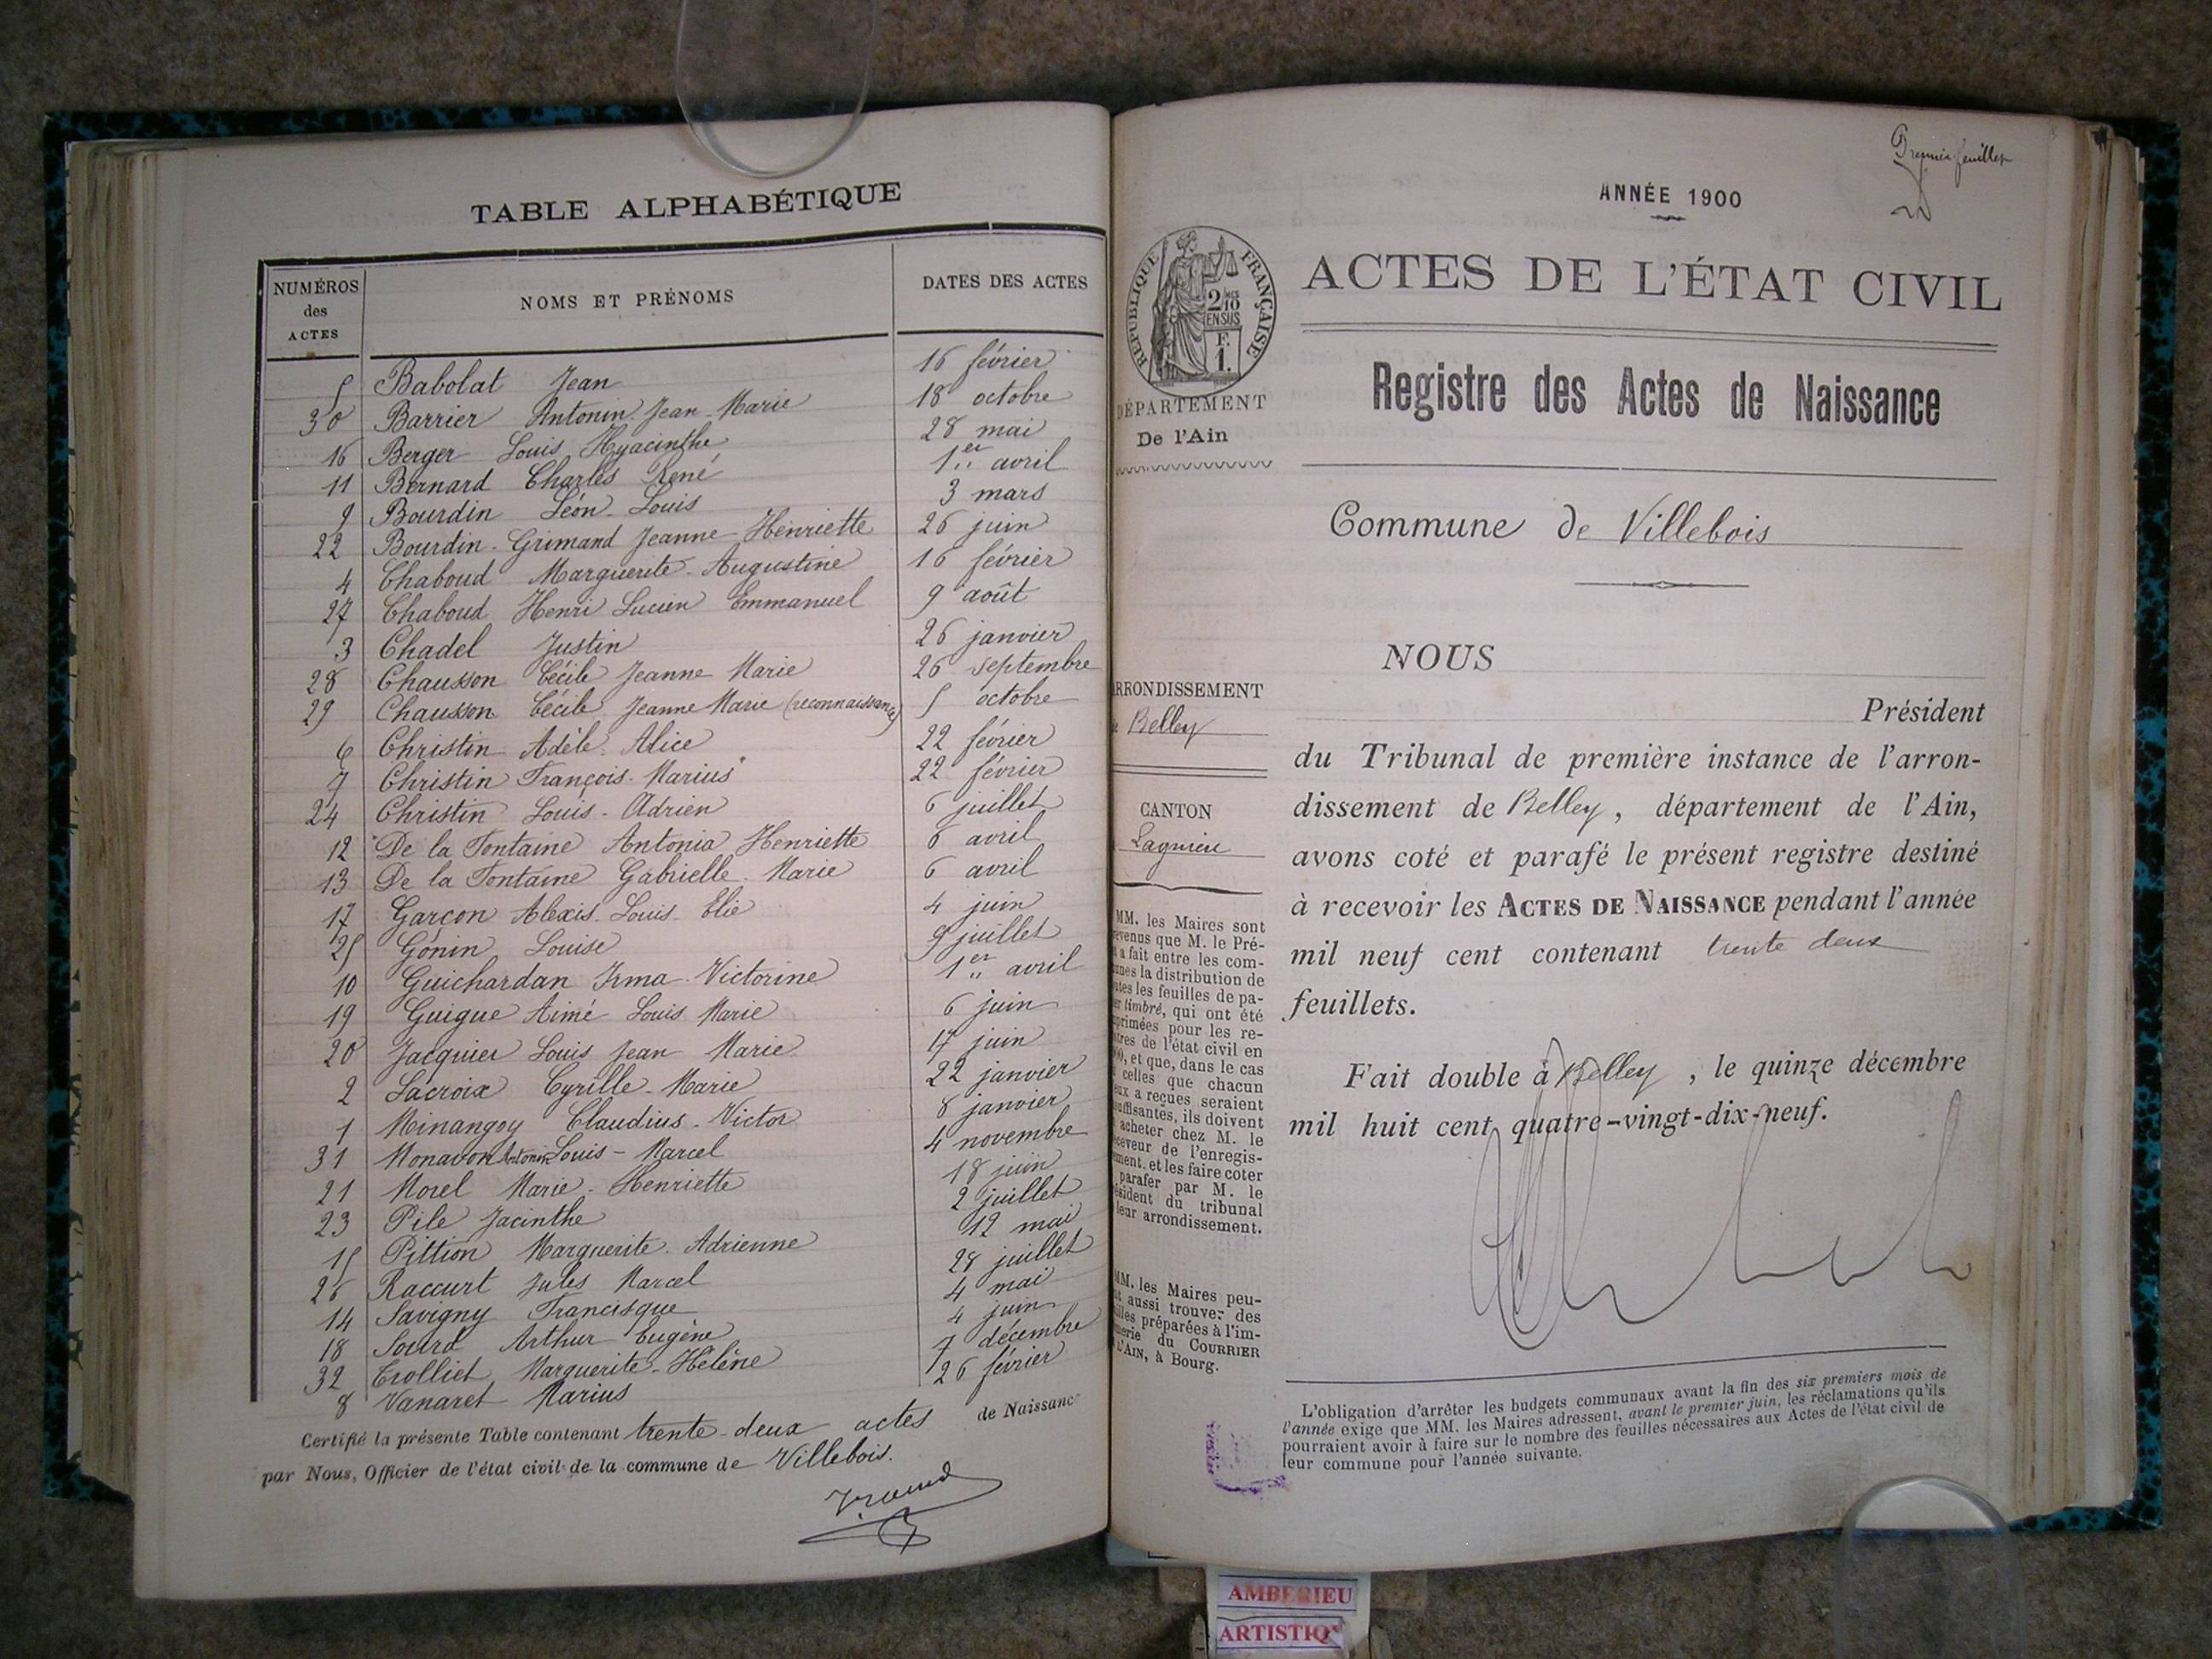 TABLE ALPHABÉTIQUE
NUMÉROS des ACTES NOMS ET PRÉNOMS DATES DES ACTES
5 Babolat Jean 16 février
30 Barrier Antonin Jean-Marie 18 octobre
16 Berger Louis Hyacinthe 28 mai
11 Bernard Charles René 1er avril
9 Bourdin Léon-Louis 3 mars
22 Bourdin-Grimand Jeanne-Henriette 26 juin
4 Chaboud Marguerite-Augustine 16 février
27 Chaboud Henri Lucien Emmanuel 9 août
3 Chadel Justin 26 janvier
28 Chausson Cécile Jeanne Marie 26 septembre
29 Chausson Cécile Jeanne Marie (reconnaissance) 5 octobre
6 Christin Adèle Alice 22 février
7 Christin François-Marius 22 février
24 Christin Louis-Adrien 6 juillet
12 De la Fontaine Antonia Henriette 6 avril
13 De la Fontaine Gabrielle Marie 6 avril
17 Garçon Alexis-Louis-Elie 4 juin
25 Gonin Louise 9 juillet
10 Guichardan Irma-Victorine 1er avril
19 Guigue Aimé Louis Marie 6 juin
20 Jacquier Louis Jean Marie 17 juin
2 Lacroix Cyrille-Marie 22 janvier
1 Minangoy Claudius-Victor 8 janvier
31 Monavon Antonin Louis-Marcel 4 novembre
21 Morel Marie-Henriette 18 juin
23 Pile Jacinthe 2 juillet
15 Pittion Marguerite Adrienne 12 mai
26 Raccurt Jules Marcel 28 juillet
14 Savigny Francisque 4 mai
18 Sourd Arthur Eugène 4 juin
32 Trolliet Marguerite-Hélène 7 décembre
8 Vanaret Marius 26 février
Certifié la présente Table contenant trente-deux actes de Naissance
par Nous, Officier de l'état civil de la commune de Villebois.
Premier feuillet
ANNÉE 1900
RÉPUBLIQUE FRANÇAISE
2/10
EN SUS
F.
1.
ACTES DE L'ÉTAT CIVIL
Registre des Actes de Naissance
DÉPARTEMENT
De l'Ain
Commune de Villebois
NOUS
ARRONDISSEMENT
Belley
Président
du Tribunal de première instance de l'arron-
dissement de Belley, département de l'Ain,
avons coté et parafé le présent registre destiné
à recevoir les ACTES DE NAISSANCE pendant l'année
mil neuf cent contenant trente deux
feuillets.
Fait double à Belley, le quinze décembre
mil huit cent quatre-vingt-dix-neuf.
CANTON
Lagnieu
MM. les Maires sont
prévenus que M. le Pré-
a fait entre les com-
munes la distribution de
toutes les feuilles de pa-
pier timbré, qui ont été
imprimées pour les re-
gistres de l'état civil en
et que, dans le cas
celles que chacun
d'eux a reçues seraient
insuffisantes, ils doivent
acheter chez M. le
receveur de l'enregis-
trement, et les faire coter
parafer par M. le
président du tribunal
leur arrondissement.
MM. les Maires peu-
vent aussi trouver des
feuilles préparées à l'im-
primerie du COURRIER
L'AIN, à Bourg.
L'obligation d'arrêter les budgets communaux avant la fin des six premiers mois de
l'année exige que MM. les Maires adressent, avant le premier juin, les réclamations qu'ils
pourraient avoir à faire sur le nombre des feuilles nécessaires aux Actes de l'état civil de
leur commune pour l'année suivante.
AMBERIEU
ARTISTIQ